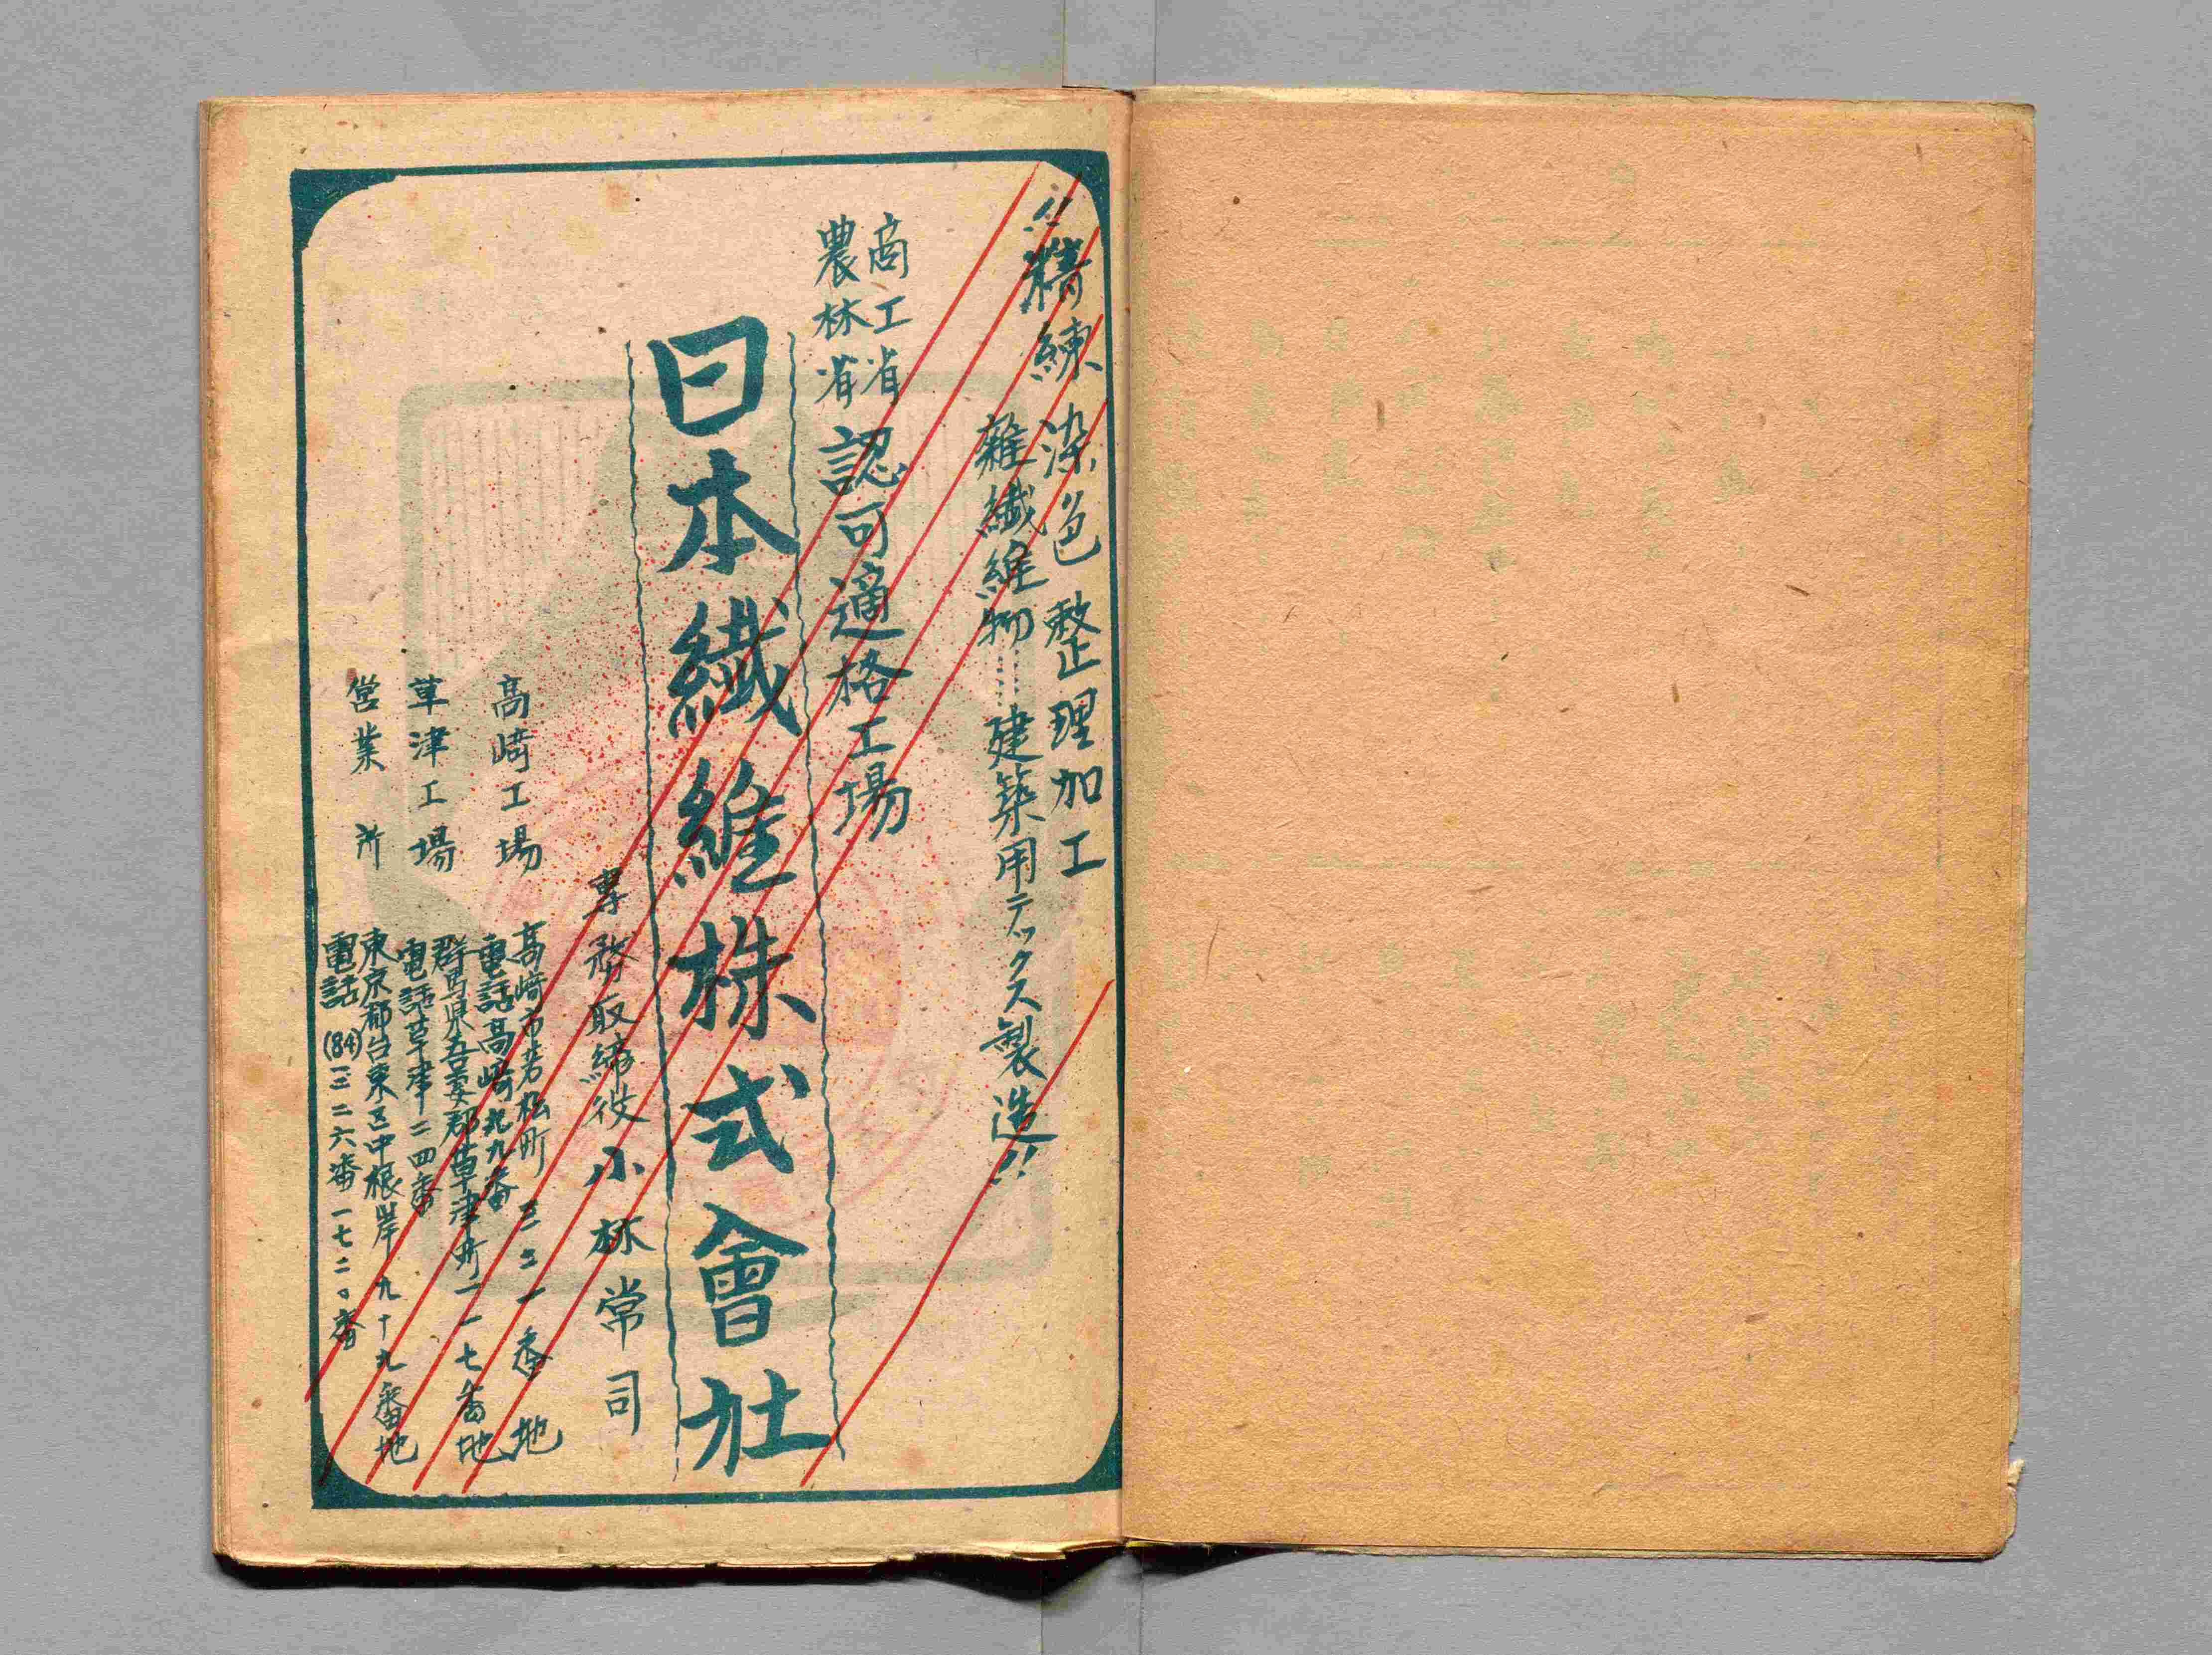 !!精練染色整理加工
雑繊維物……建築用テックス製造!!
商工省
農林省
認可適格工場
日本繊維株式會社
専務取締役 小林常司
高崎工場
高崎市若松町 三二一番地
電話高崎九九番
草津工場
群馬県吾妻郡草津町一一七番地
電話草津二四番
営業所
東京都台東区中根岸九十九番地
電話(84)三二六番 一七二〇番